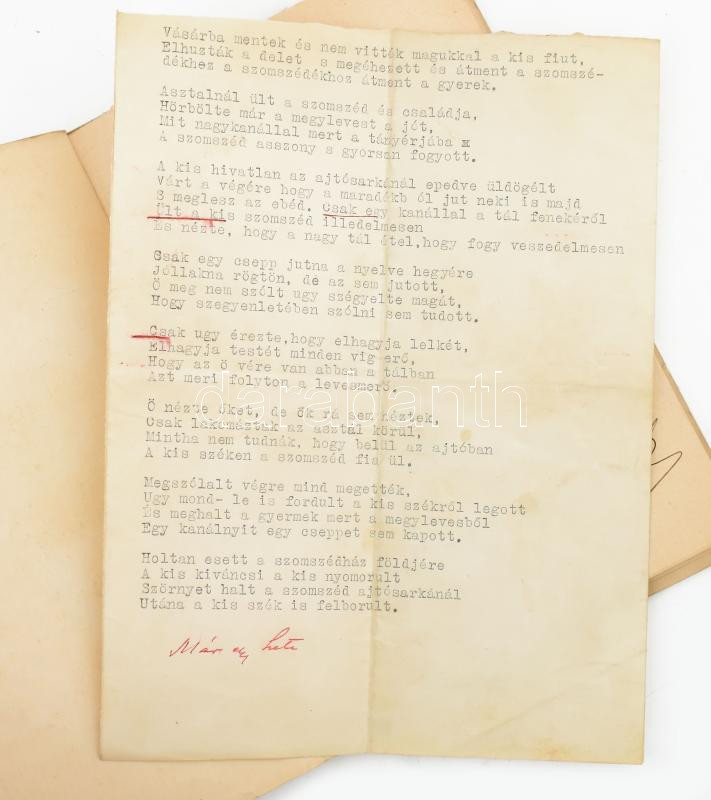 Vásárba mentek és nem vitték magukkal a kis fiut,
Elhuzták a delet s megéhezett és átment a szomszé-
dékhez a szomszédékhoz átment a gyerek.
Asztalnál ült a szomszéd és családja,
Hörbölte már a megylevest a jót,
Mit nagykanállal mert a tányérjába x
A szomszéd asszony s gyorsan fogyott.
A kis hivatlan az ajtósarkánál epedve üldögélt
Várt a végére hogy a maradékb ól jut neki is majd
S meglesz az ebéd. Csak egy kanállal a tál fenekéről
Ült a kis szomszéd illedelmesen
És nézte, hogy a nagy tál étel,hogy fogy veszedelmesen
Csak egy csepp jutna a nyelve hegyére
Jóllakna rögtön, de az sem jutott,
Ő meg nem szólt ugy szégyelte magát,
Hogy szegyenletében szólni sem tudott.
Csak ugy érezte,hogy elhagyja lelkét,
Elhagyja testét minden vig erő,
Hogy az ő vére van abban a tálban
Azt meri folyton a levesmerő.
Ő nézte őket, de ők rá sem néztek,
Csak lakomáztak az asztal körül,
Mintha nem tudnák, hogy belül az ajtóban
A kis széken a szomszéd fia ül.
Megszólalt végre mind megették,
Ugy mond- le is fordult a kis székről legott
És meghalt a gyermek mert a megylevesből
Egy kanálnyit egy cseppet sem kapott.
Holtan esett a szomszédház földjére
A kis kiváncsi a kis nyomorult
Szörnyet halt a szomszéd ajtósarkánál
Utána a kis szék is felborult.
Már egy hete
darabanth